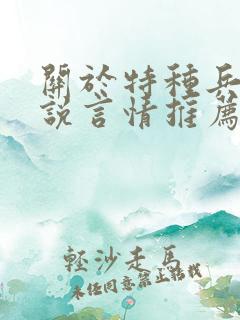 關於特種兵
說言情推薦
輕沙走馬
未經同意禁止轉載